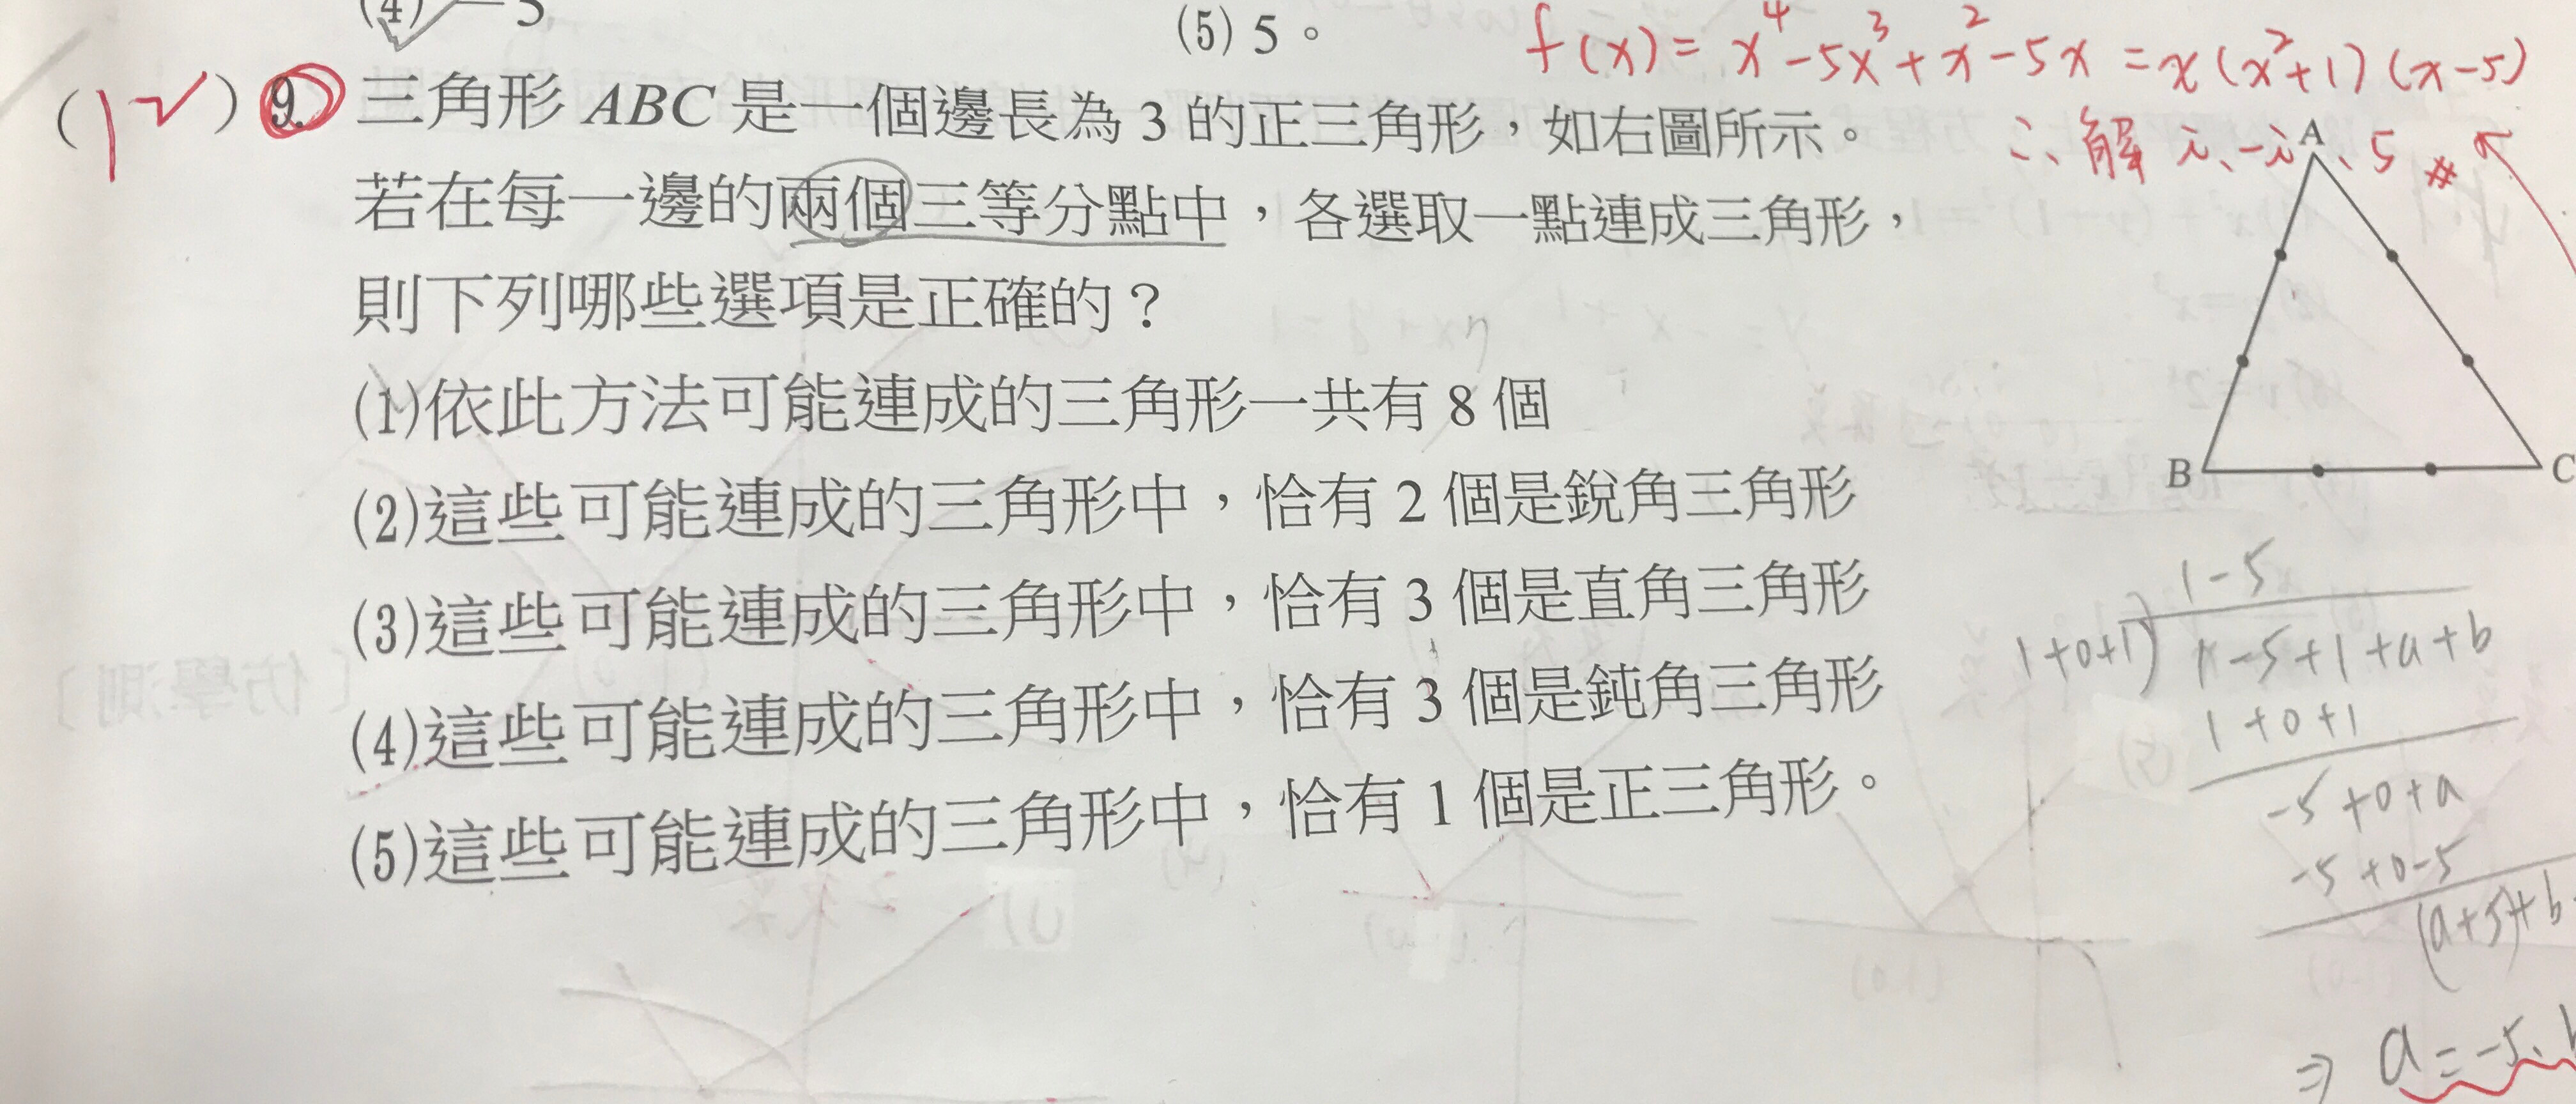 (4) -5
(5) 5。
f(x) = x⁴-5x³+x²-5x = x(x²+1)(x-5)
∴ 解 i、-i、5 #
(1 ) 9. 三角形 ABC 是一個邊長為 3 的正三角形，如右圖所示。
若在每一邊的兩個三等分點中，各選取一點連成三角形，
則下列哪些選項是正確的？
(1)依此方法可能連成的三角形一共有 8 個
(2)這些可能連成的三角形中，恰有 2 個是銳角三角形
(3)這些可能連成的三角形中，恰有 3 個是直角三角形
(4)這些可能連成的三角形中，恰有 3 個是鈍角三角形
(5)這些可能連成的三角形中，恰有 1 個是正三角形。
A
B
C
1-5
1+0+1) 1-5+1+a+b
1+0+1
-5+0+a
-5+0-5
(a+5)+b
⇒ a=-5、